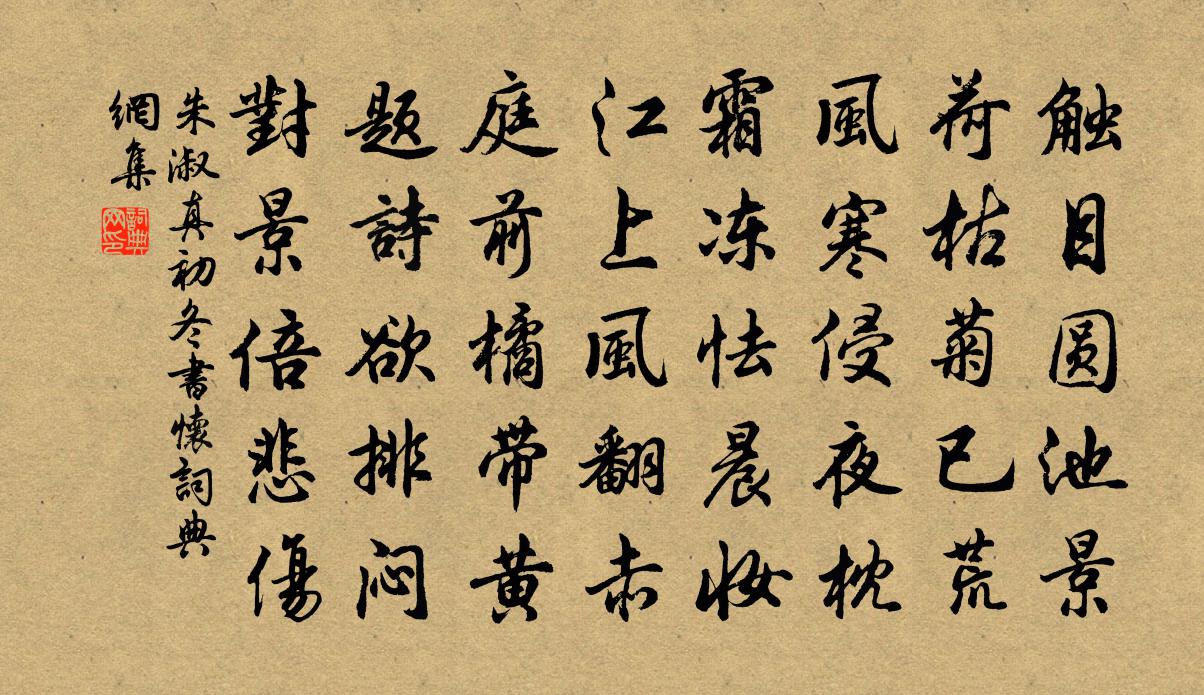 触目圆池景
荷枯菊已荒
風寒侵夜枕
霜冻怯晨妝
江上風翻赤
庭前橘帶黃
题詩欲排闷
對景倍悲傷
朱淑真初冬書懷詞典
網集
詞典
网印